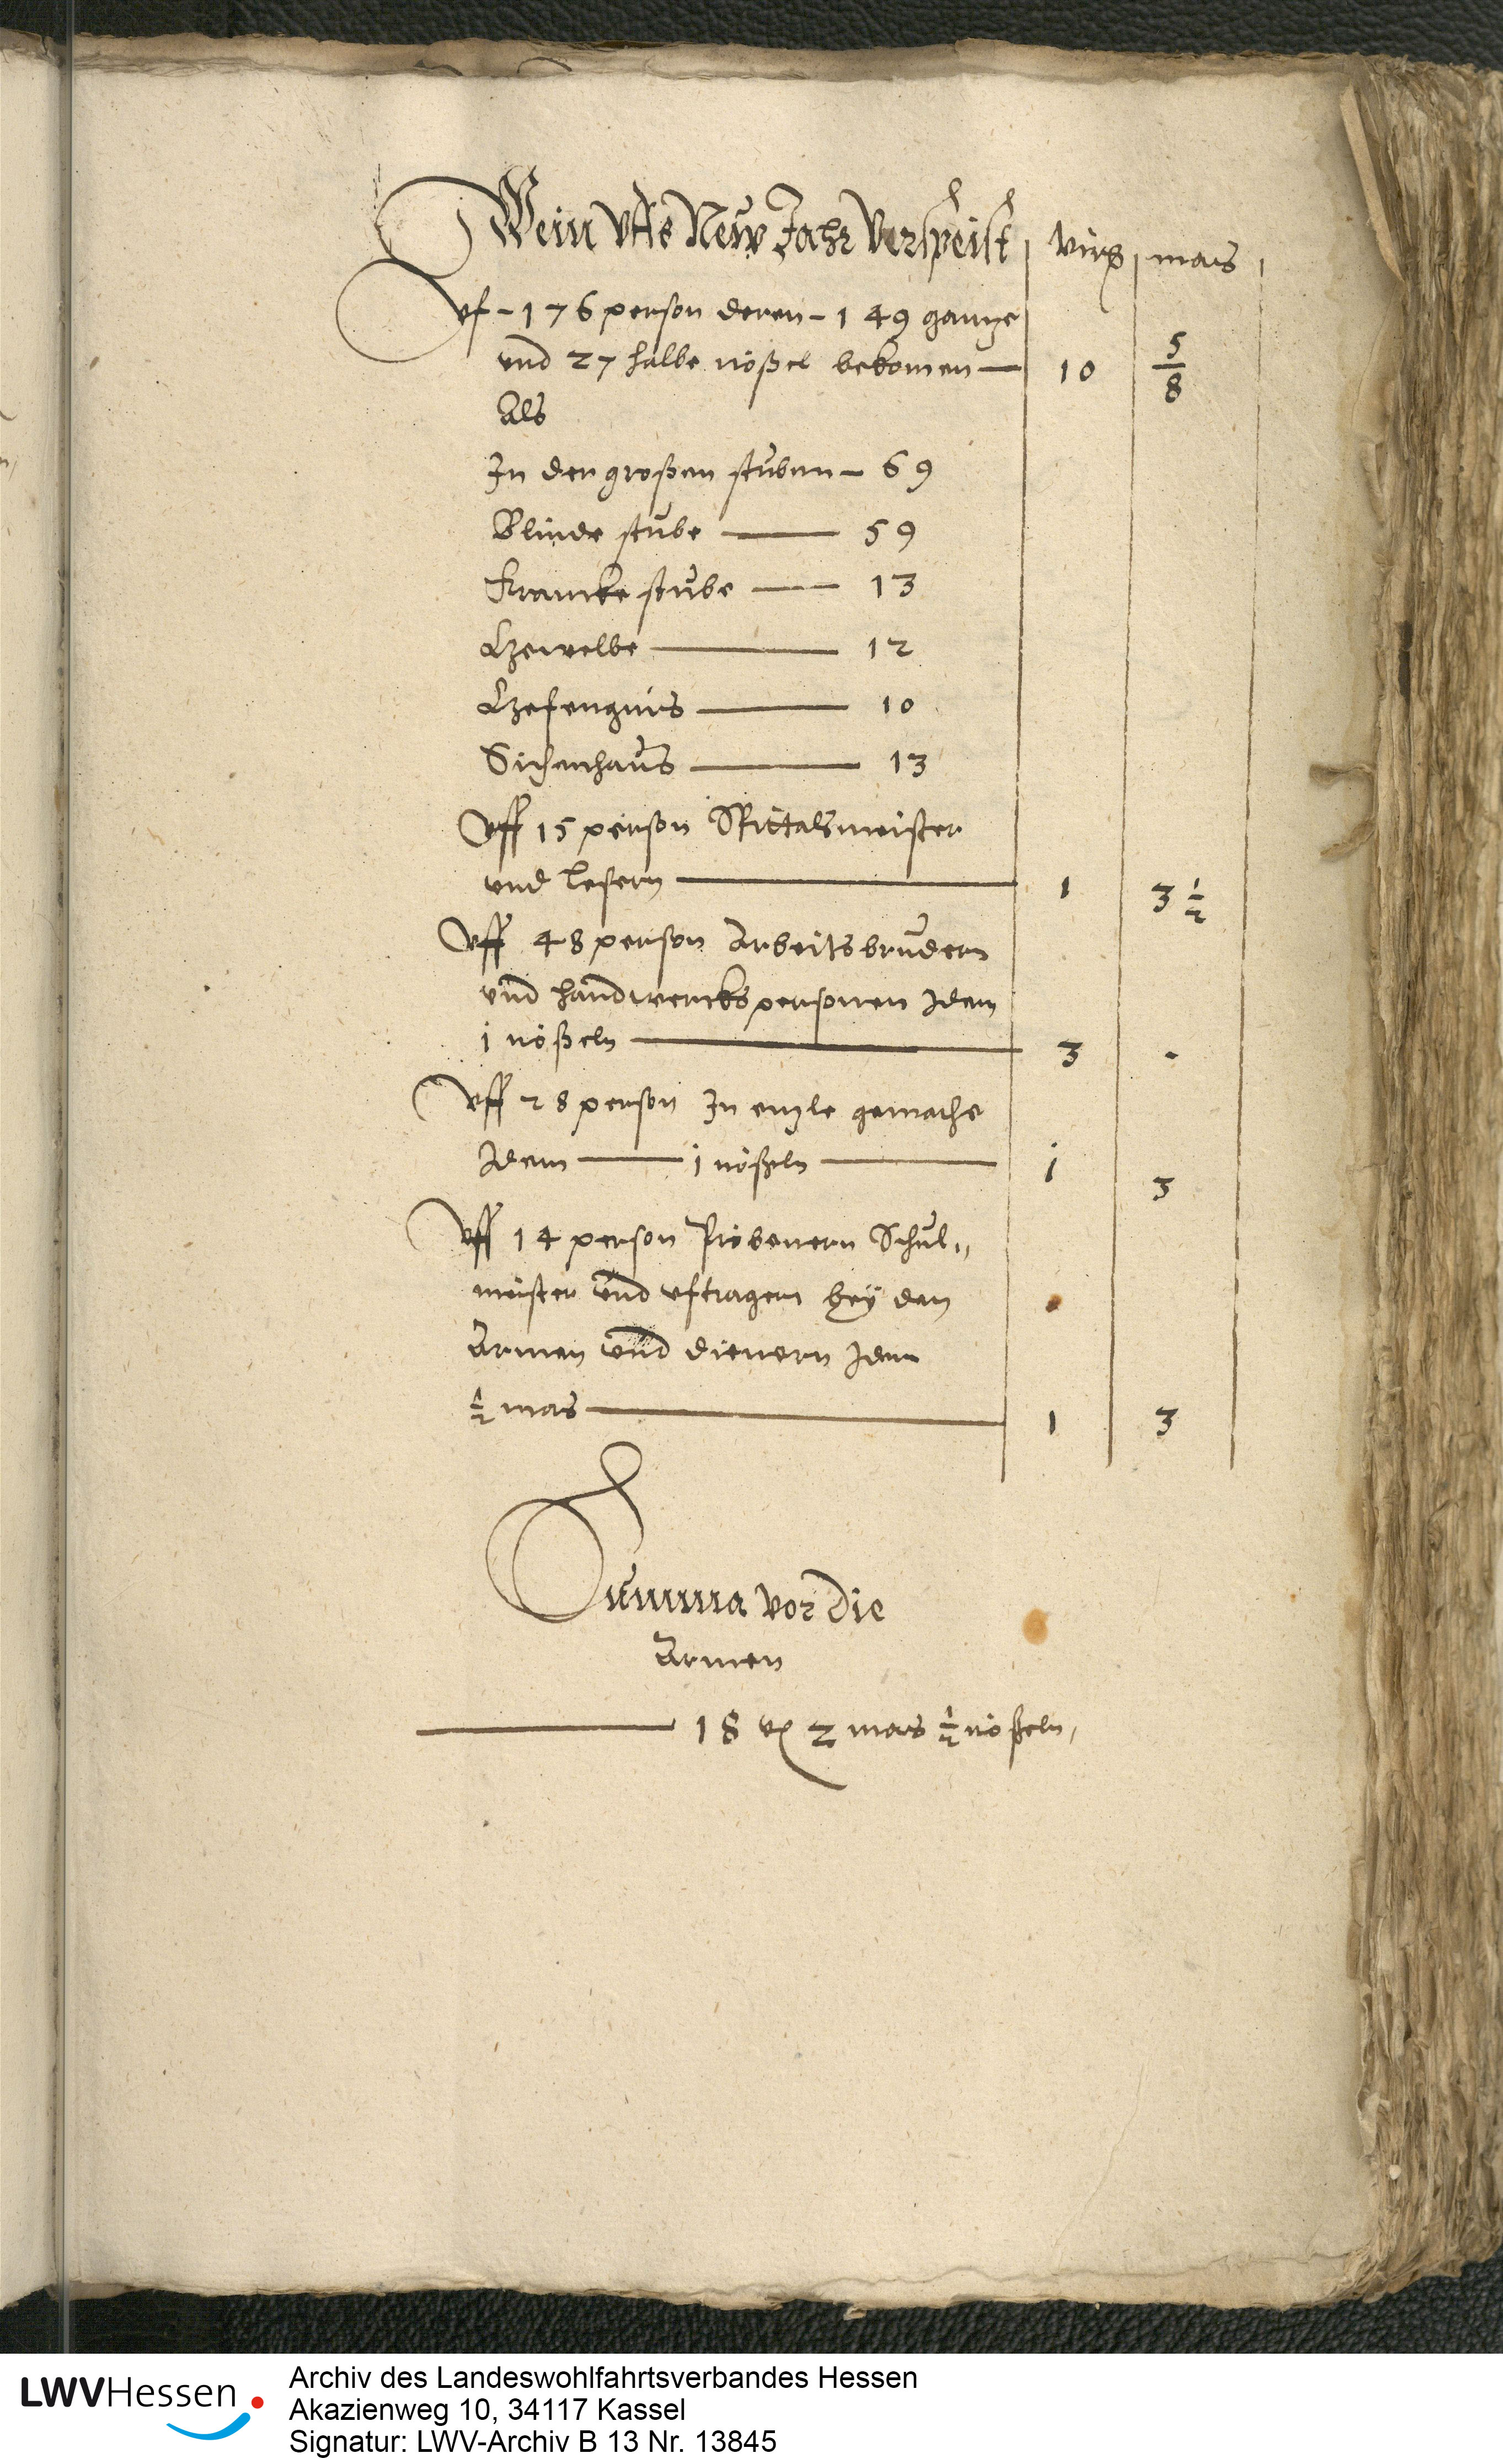 Wein uffs New Jahr verspeist virg mas
Uf - 176 person deren - 149 gantze
und 27 halbe nößel bekomen — 10 5/8
Als
In der großen stuben — 69
Blinde stube — 59
Krancke stube — 13
Gewelbe — 12
Gefengnus — 10
Sichenhaus — 13
Uff 15 person Spittalsmeister
und lesern — 1 3 1/2
Uff 48 person Arbeitsbrudern
und handwercks personen Idem
1 nößeln — 3 -
Uff 28 person In entzle gemache
Idem — 1 nößeln — 1 3
Uff 14 person Pröbenern Schul„
meister und uftragern bey den
Armen und dienern Idem
1/2 mas — 1 3
Summa vor die
Armen
— 18 v 2 mas 1/2 nößeln,
LWVHessen
Archiv des Landeswohlfahrtsverbandes Hessen
Akazienweg 10, 34117 Kassel
Signatur: LWV-Archiv B 13 Nr. 13845